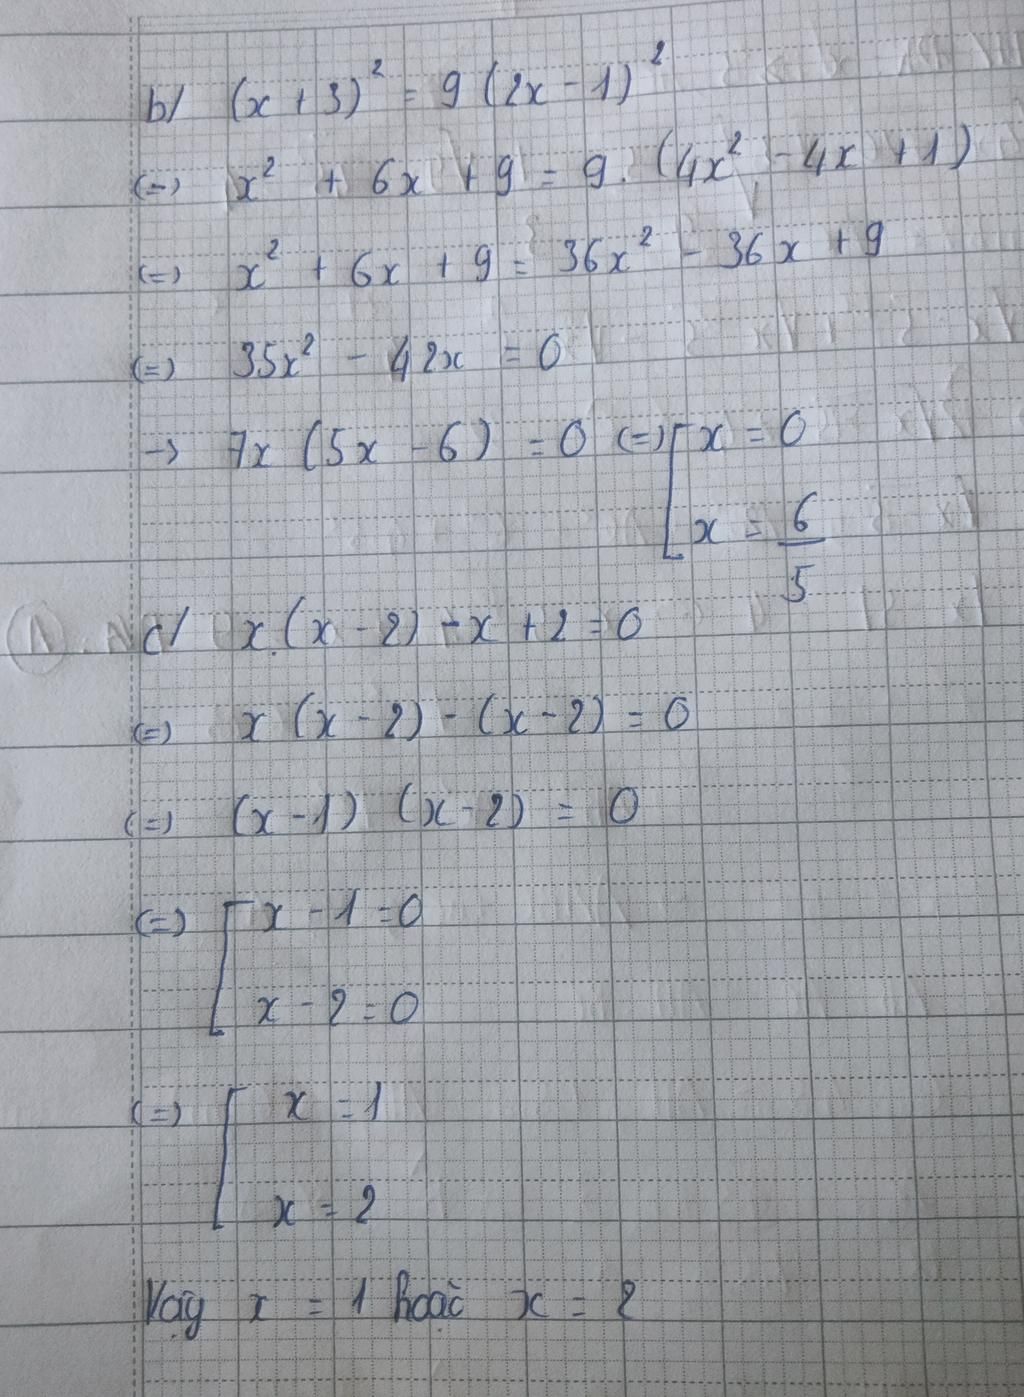 b/ (x + 3)² = 9 (2x - 1)²
(=) x² + 6x + 9 = 9. (4x² - 4x + 1)
(=) x² + 6x + 9 = 36x² - 36x + 9
(=) 35x² - 42x = 0
-> 7x (5x - 6) = 0 (=) [ x = 0
x = 6/5
c/ x.(x - 2) - x + 2 = 0
(=) x (x - 2) - (x - 2) = 0
(=) (x - 1) (x - 2) = 0
(=) [ x - 1 = 0
x - 2 = 0
(=) [ x = 1
x = 2
Vậy x = 1 hoặc x = 2